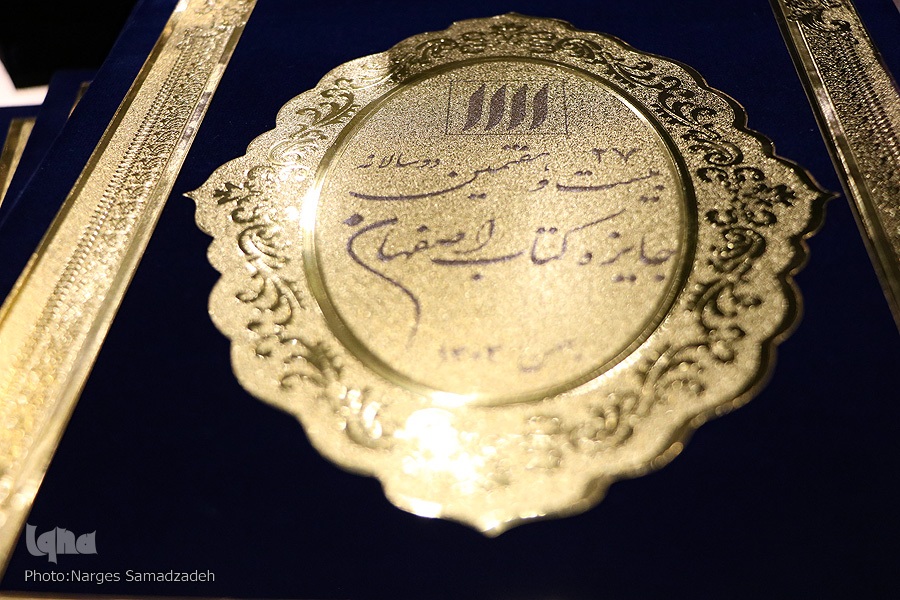 ۲۷
بیست و هفتمین دوسالانه
جایزه کتاب اصفهان
بهمن ۱۴۰۳
iqna
Photo:Narges Samadzadeh